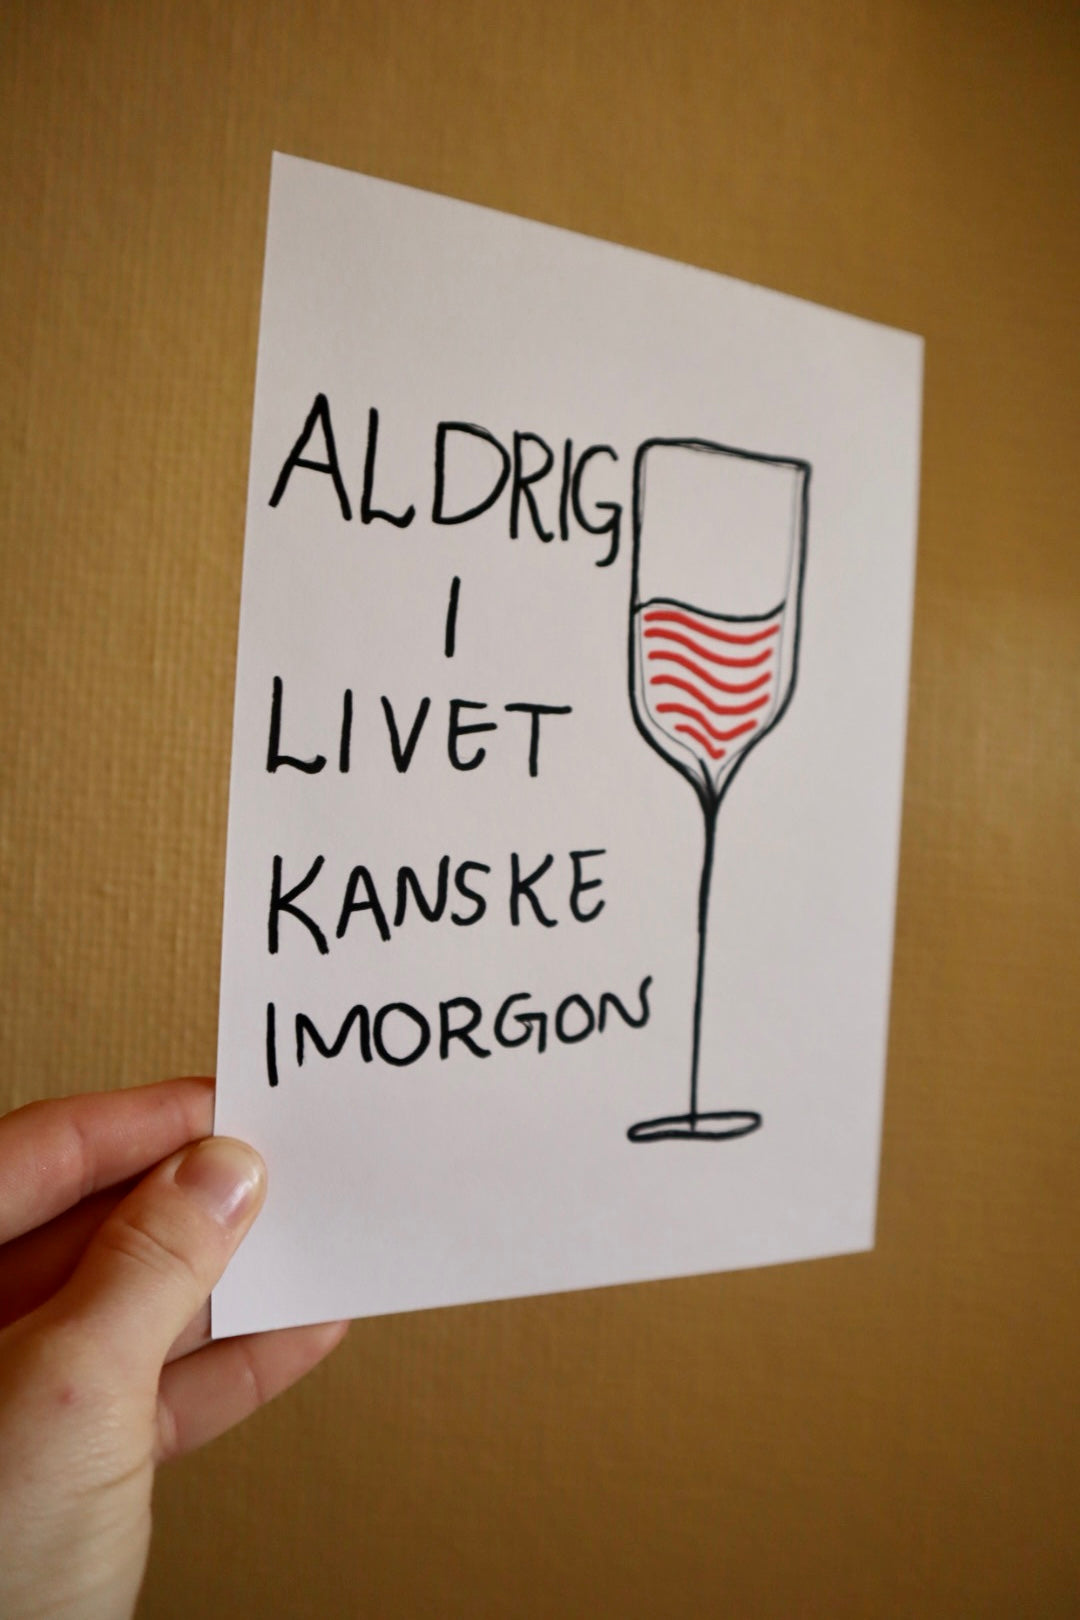 ALDRIG
I
LIVET
KANSKE
IMORGON